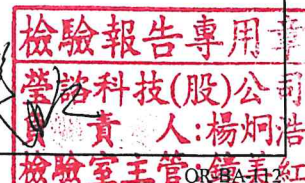 檢驗報告專用章
瑩諮科技(股)公司
負責人:楊炯浩
檢驗室主管:鍾美紅
QR-BA-112